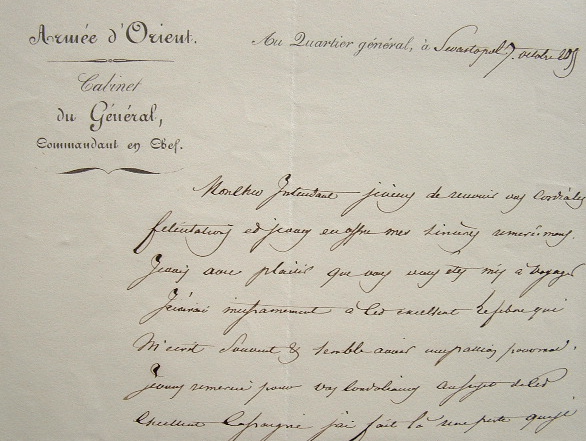 Armée d'Orient.
Au Quartier général, à Sevastopol, 7 octobre 1855
Cabinet
du Général,
Commandant en Chef.
Mon cher Intendant je viens de recevoir vos cordiales
félicitations et je vous en offre mes sincères remerciements.
Je vois avec plaisir que vous vous êtes mis à
J'écrirai à cet excellent Lefebvre qui
M'écrit souvent & semble avoir
Je vous remercie pour vos condoléances au sujet de cet
excellent Cassaigne j'ai fait là une perte